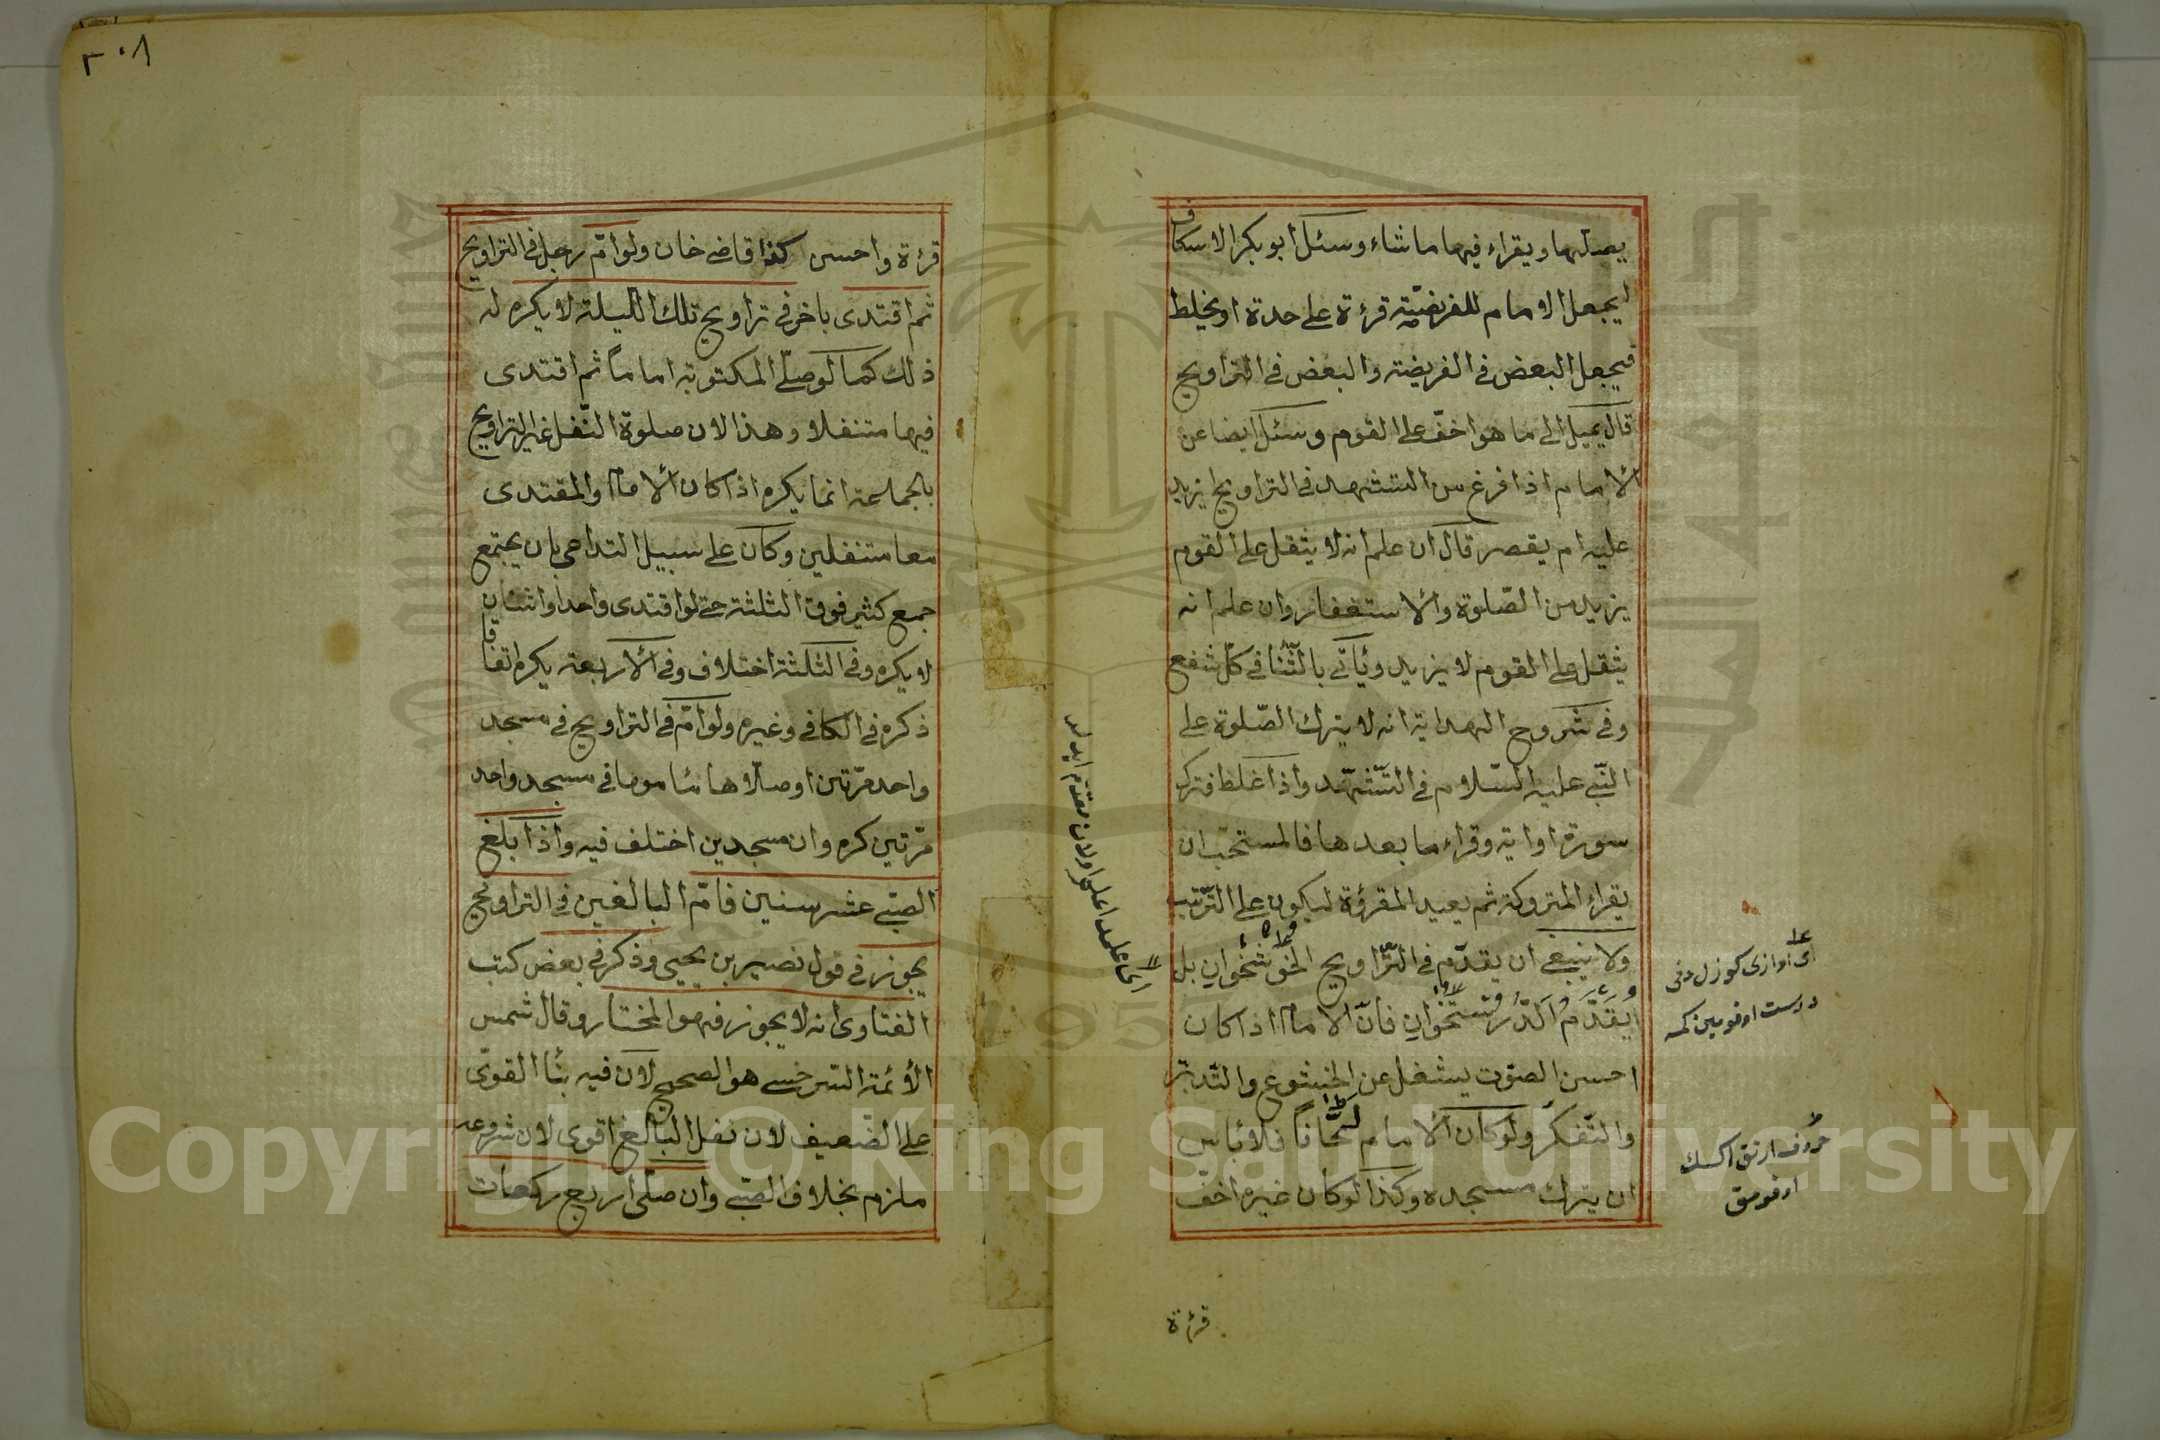 يصليها ويقراء فيها ما شاء وسئل ابو بكر الاسكاف
ايجعل الامام للفريضة قرءة على حدة او يخلط
فيجعل البعض في الفريضة والبعض في التراويح
قال يميل الى ما هو اخف على القوم وسئل ايضا عن
الامام اذا فرغ من التشهد في التراويح ايزيد
عليه ام يقصر قال ان علم انه لا يثقل على القوم
يزيد من الصلوة والاستغفار وان علم انه
يثقل على القوم لا يزيد ويأتي بالثنا في كل شفع
وفي شروح الهداية انه لا يترك الصلوة على
النبي عليه السلام في التشهد واذا غلط فترك
سورة او اية وقراء ما بعدها فالمستحب ان
يقراء المتروكة ثم يعيد المقرؤة ليكون على الترتيب
ولا ينبغي ان يقدم في التراويح الخوشخوان بل
يقدم الدرستخوان فان الامام اذا كان
احسن الصوت يشغل عن الخشوع والتدبر
والتفكر ولو كان الامام لحانا فلا بأس
ان يترك مسجده وكذا لو كان غيره اخف
اى اوازى كوزل دفى
درست اوقويين كمسه
حروف ارتق اكسك
اوقومق
قرءة
٣٠٨
قرءة واحسن كذا قاضي خان ولو ام رجل في التراويح
ثم اقتدى باخر في تراويح تلك الليلة لا يكره له
ذلك كما لو صلى المكتوبة اماما ثم اقتدى
فيها متنفلا وهذا لان صلوة النفل غير التراويح
بالجماعة انما يكره اذا كان الامام والمقتدى
معا متنفلين وكان على سبيل التداعي بان يجتمع
جمع كثير فوق الثلثة حتى لو اقتدى واحد او اثنان
لا يكره وفي الثلثة اختلاف وفي الاربعة يكره اتفاقا
ذكره في الكافي وغيره ولو ام في التراويح في مسجد
واحد مرتين او صلاها مأموما في مسجد واحد
مرتين كره وان مسجدين اختلف فيه واذا بلغ
الصبي عشر سنين فام البالغين في التراويح
يجوز في قول نصير بن يحيى وذكر في بعض كتب
الفتاوى انه لا يجوز فهو المختار وقال شمس
الأئمة السرخسي هو الصحيح لان فيه بناء القوى
على الضعيف لان نفل البالغ اقوى لان شروعه
ملزم بخلاف الصبي وان صلى اربع ركعات